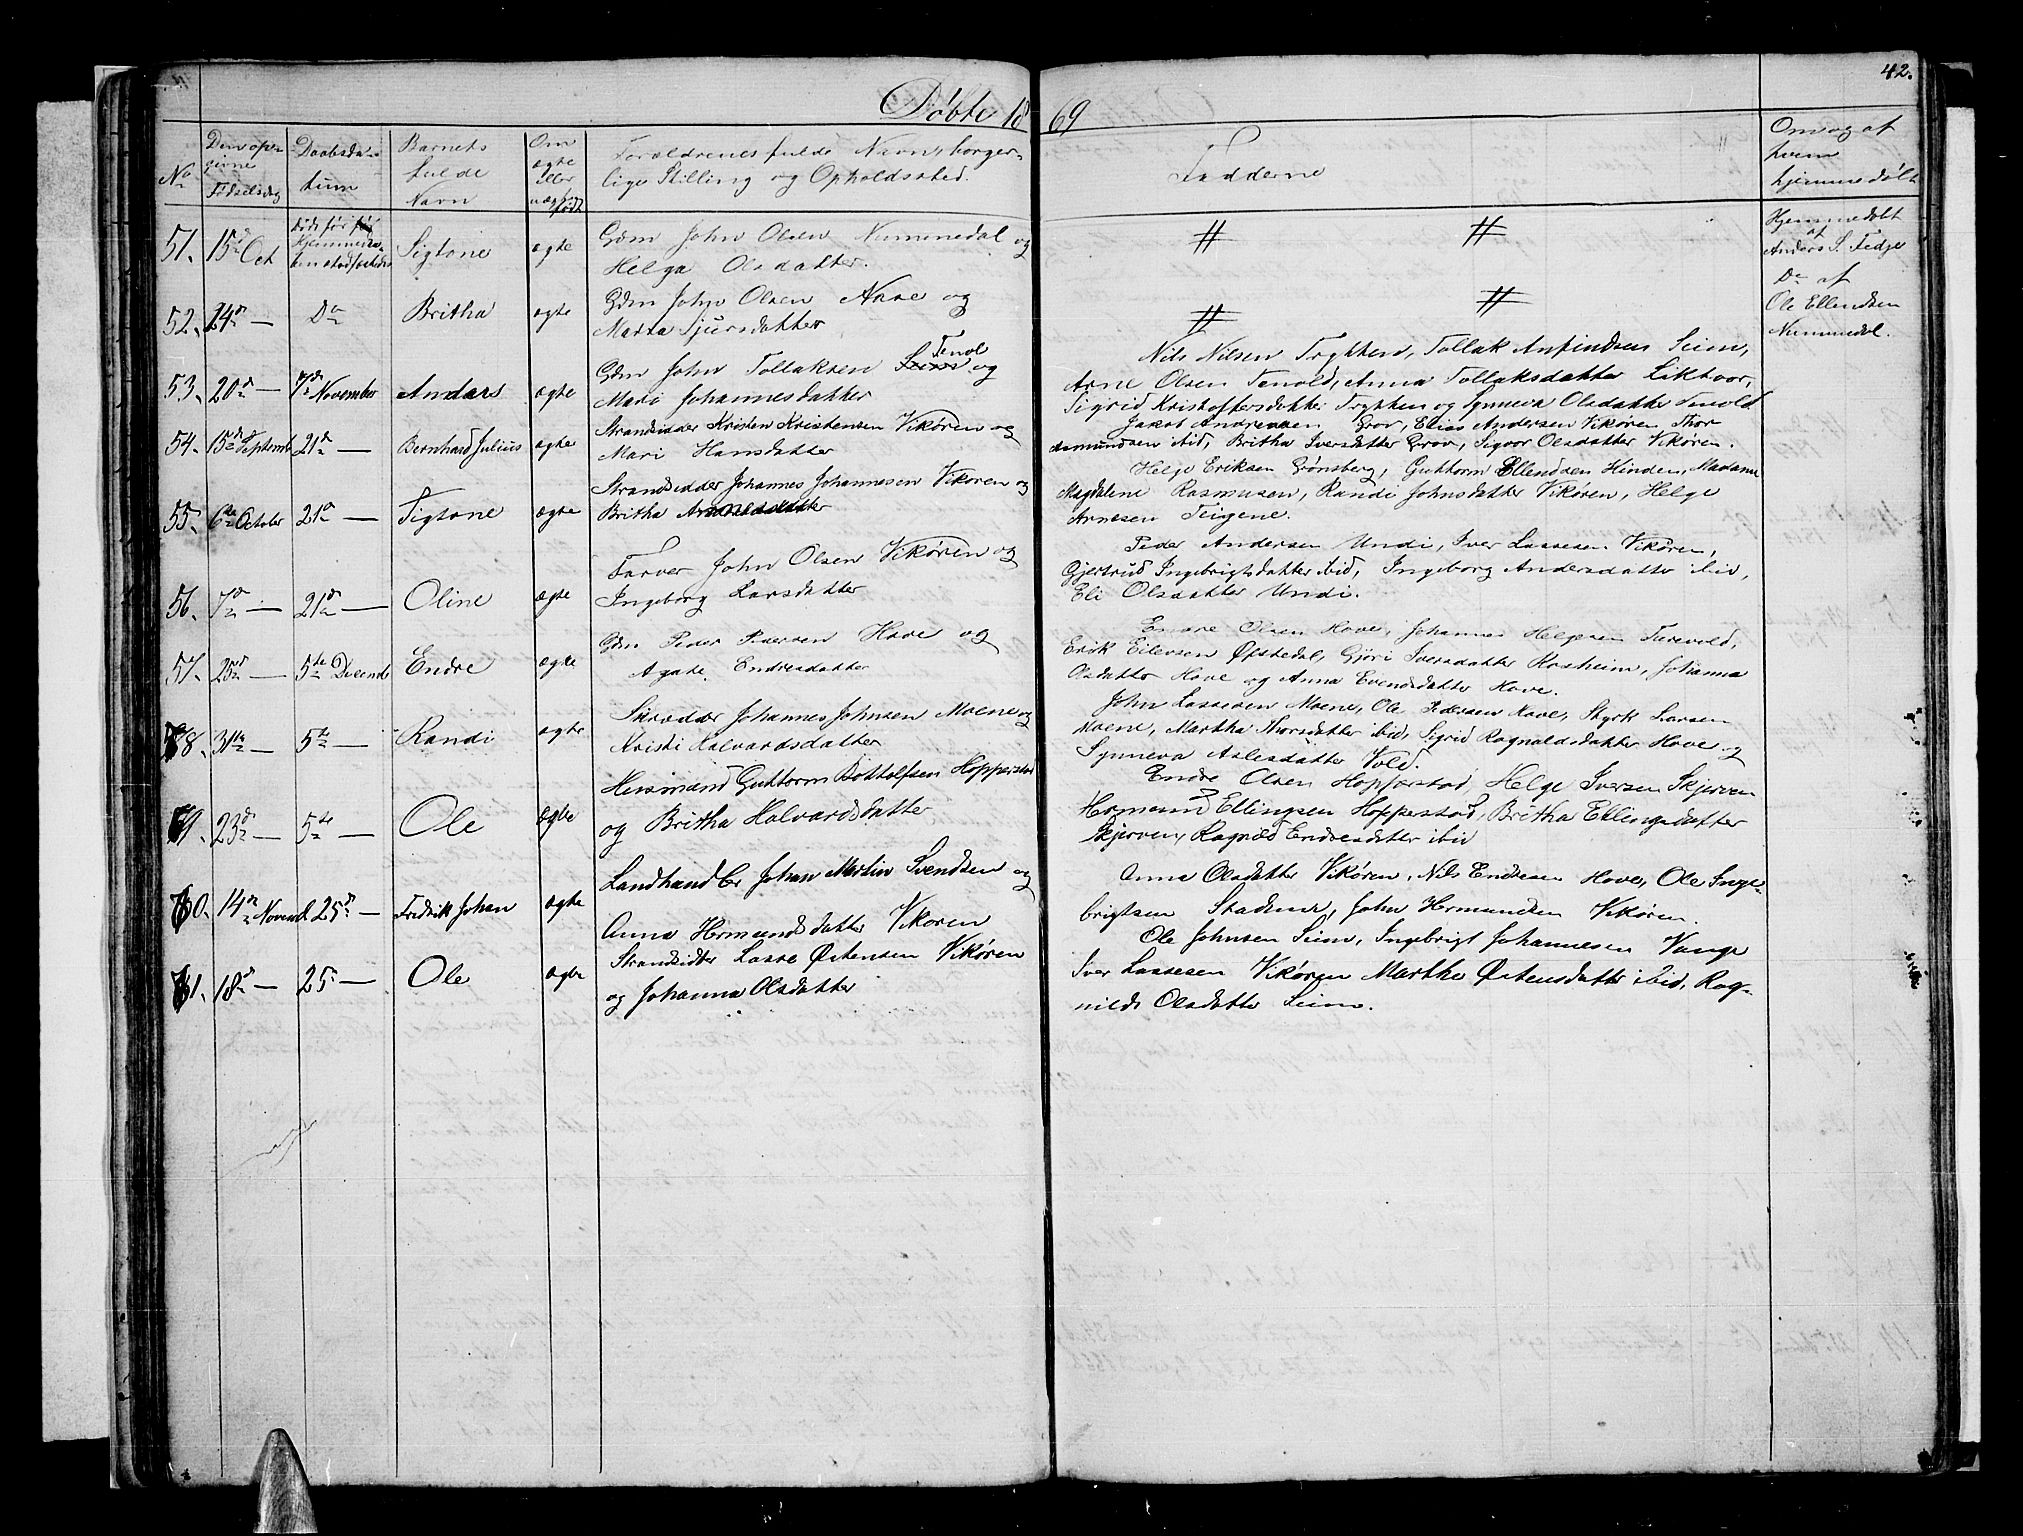 42.
Døbte 1869
No
Den opgivne Fødselsdag
Daabsdatum
Barnets fulde Navn
Om ægte eller uægte født
Forældrenes fulde Navn, borgerlige Stilling og Opholdssted.
Fadderne
Om og af hvem hjemmedøbt
51. 15de Oct Døde før Sigtone ægte Gdm John Olsen Nummedal og
Helga Olsdatter.
# #
Hjemmedøbt af Anders S. Fedje
52. 24de — Do Britha ægte Gdm John Olsen Nese og
Marta Sjursdatter
# #
Do af Ole Ellendsen Nummedal.
53. 20de — 7de November Anders ægte Gdm John Tollaksen Seim Tenol og
Mari Johannesdatter
Nils Nilsen Trykten, Tollak Anfindsen Seim,
Arne Olsen Tenold, Anna Tollaksdatter Liktvor,
Sigrid Kristoffersdatter Trykten og Synneva Olsdatter Tenold
54. 15de Septemb 21de — Bernhard Julius ægte Strandsidder Kristen Kristensen Vikøren og
Mari Hansdatter
Jakob Andreasen Grov, Elias Andersen Vikøren, Thor
Asmundsen ibid, Britha Iversdatter Grov, Sigvor Olsdatter Vikøren.
55. 6te October 21de — Sigtone ægte Strandsidder Johannes Johannesen Vikøren og
Britha
Helge Eriksen Grønsberg, Guttorm Ellendsen Hinden, Madame
Magdalene Rasmusen, Randi Johnsdatter Vikøren, Helge
Arnesen Teigene.
56. 7de — 21de — Oline ægte Farver John Olsen Vikøren og
Ingeborg Larsdatter
Peder Andersen Undi, Iver Lassesen Vikøren,
Gjertrud Ingebrigtsdatter ibid, Ingeborg Andersdatter ibid,
Eli Olsdatter Undi.
57. 25de — 5te Decemb Endre ægte Gdm Peder Pedersen Hove og
Agate Endresdatter
Endre Olsen Hove, Johannes Helgesen Turvold,
Erik Eilevsen Øfstedal, Gjøri Iversdatter Hosheim, Johanna
Olsdatter Hove og Anna Evendsdatter Hove.
58. 31te — 5te — Randi ægte Skrædder Johannes Johnsen Moene og
Kristi Halvardsdatter
John Lassesen Moene, Ole Pedersen Hove, Styrk Larsen
Moene, Martha Thorsdatter ibid, Sigrid Ragnaldsdatter Hove og
Synneva Aslesdatter Vold.
59. 23de — 5te — Ole ægte Huusmand Guttorm Bottolfsen Hopperstad
og Britha Halvardsdatter
Endre Olsen Hopperstad, Helge Iversen Skjerven
Hermund Ellingsen Hopperstad, Britha Ellingsdatter
Skjerven, Ragnild Endresdatter ibid
60. 14de Novemb 25de — Fredrik Johan ægte Landhandler Johan Martin Svendsen og
Anna Hermundsdatter Vikøren
Anna Olsdatter Vikøren, Nils Endresen Hove, Ole Ingebrigtsen
Stadeim, John Hermundsen Vikøren.
61. 18de — 25 — Ole ægte Strandsidder Lasse Østensen Vikøren
og Johanna Olsdatter
Ole Johnsen Seim, Ingebrigt Johannesen Vange
Iver Lassesen Vikøren Marthe Østensdatter ibid, Ragnilde
Olsdatter Seim.